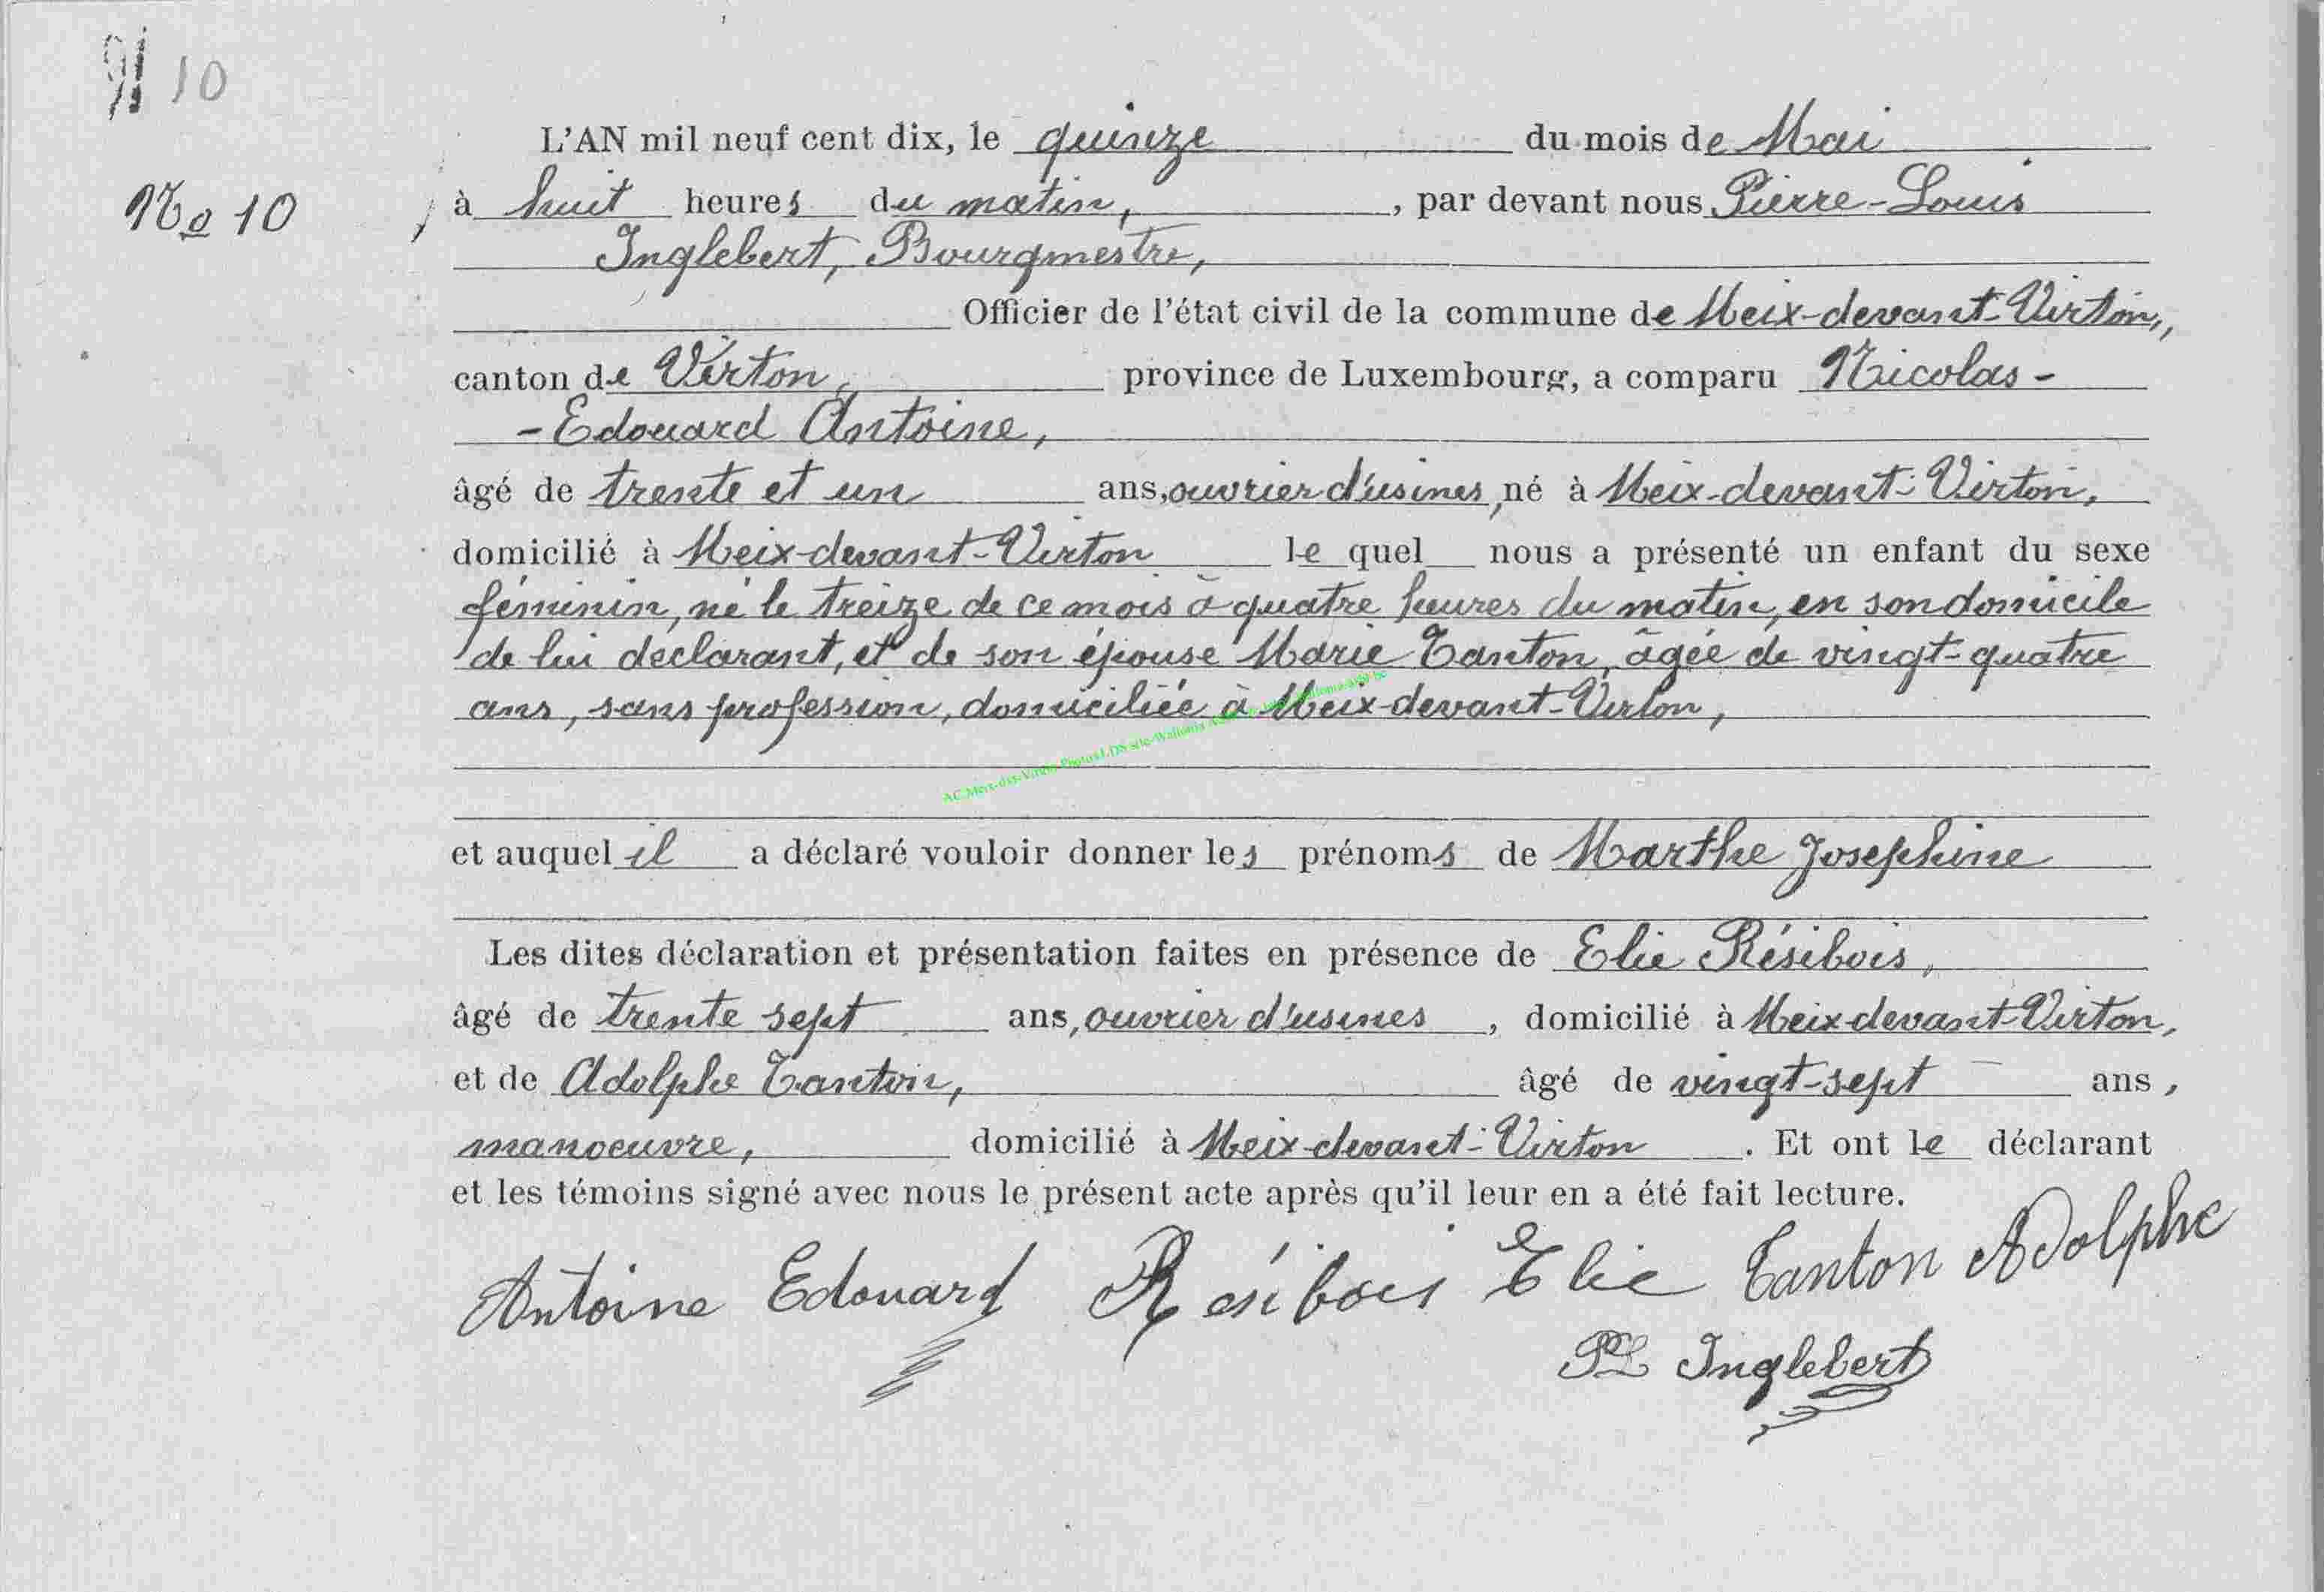 10
No 10
L'AN mil neuf cent dix, le quinze du mois de Mai
à huit heures du matin, , par devant nous Pierre-Louis
Inglebert, Bourgmestre,
Officier de l'état civil de la commune de Meix-devant-Virton,
canton de Virton, province de Luxembourg, a comparu Nicolas-
-Edouard Antoine,
âgé de trente et un ans, ouvrier d'usines, né à Meix-devant-Virton,
domicilié à Meix-devant-Virton le quel nous a présenté un enfant du sexe
féminin, né le treize de ce mois à quatre heures du matin, en son domicile
de lui déclarant, et de son épouse Marie Tanton, âgée de vingt-quatre
ans, sans profession, domiciliée à Meix-devant-Virton,
et auquel il a déclaré vouloir donner les prénoms de Marthe Josephine
Les dites déclaration et présentation faites en présence de Elie Résibois,
âgé de trente sept ans, ouvrier d'usines, domicilié à Meix-devant-Virton,
et de Adolphe Tanton, âgé de vingt-sept ans,
manoeuvre, domicilié à Meix-devant-Virton. Et ont le déclarant
et les témoins signé avec nous le présent acte après qu'il leur en a été fait lecture.
Antoine Edouard Résibois Elie Tanton Adolphe
PL Inglebert